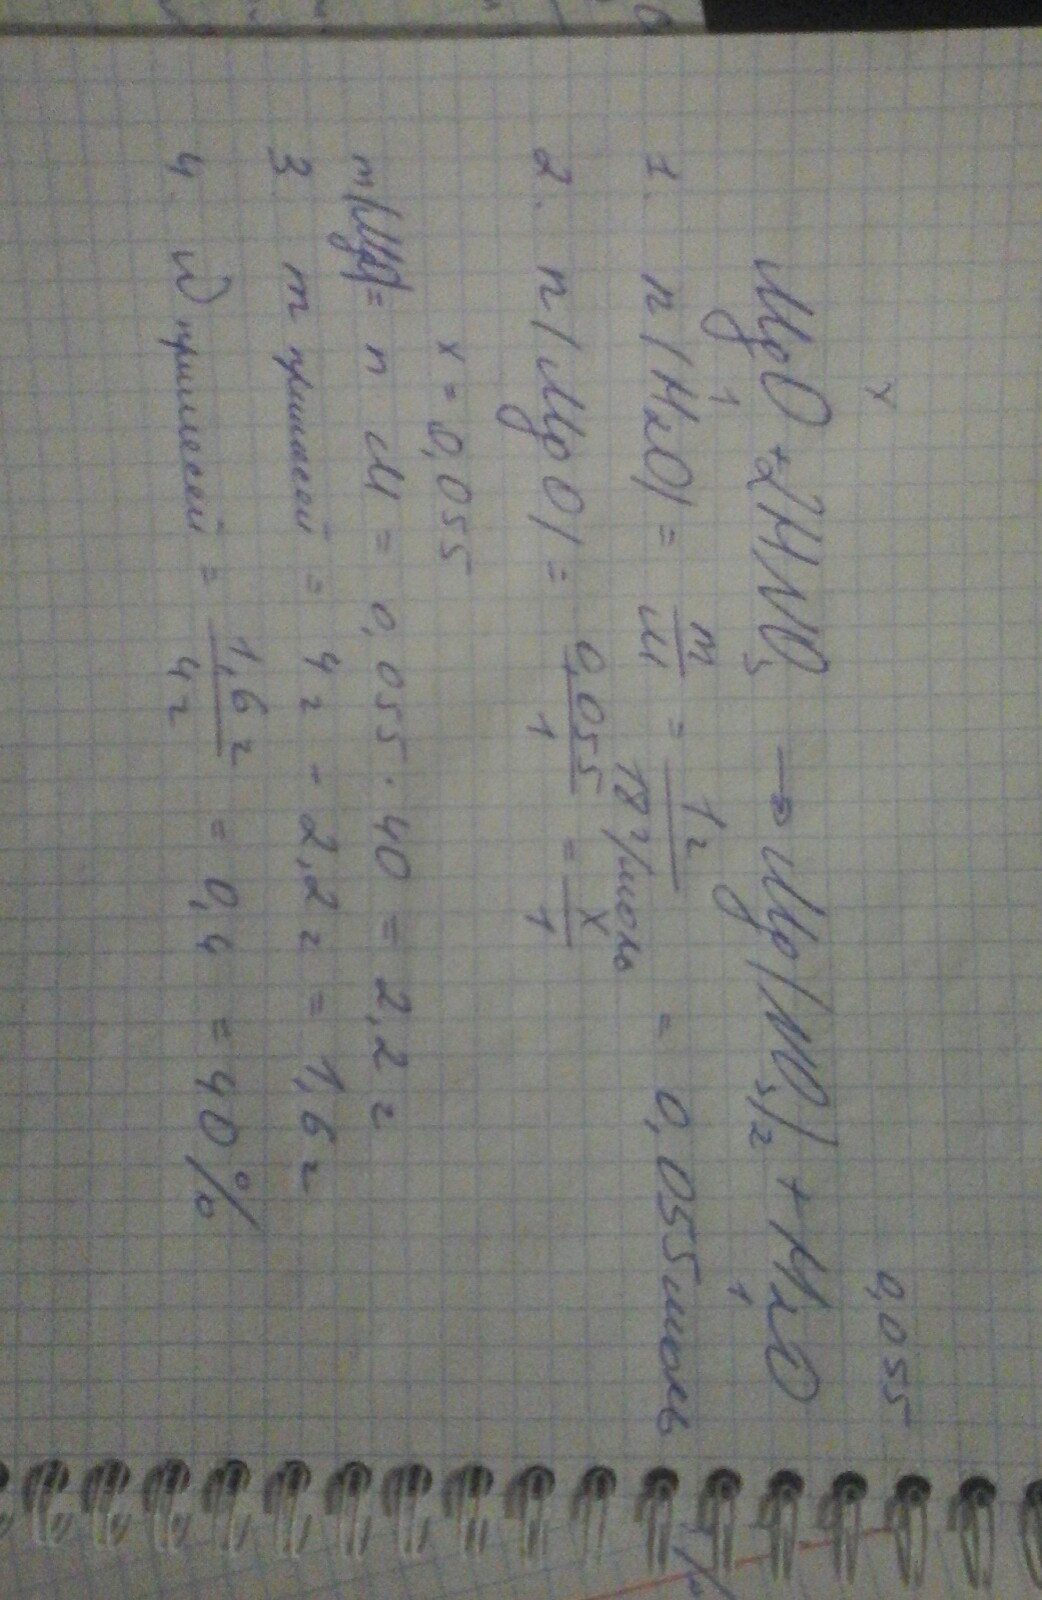 x 0,055
MgO + 2HNO₃ → Mg(NO₃)₂ + H₂O
1 1
1. n(H₂O) = m/M = 1г/18г/моль = 0,055 моль
2. n(MgO) = 0,055/1 = x/1
x = 0,055
m(MgO) = n M = 0,055 · 40 = 2,2 г
3. m примесей = 4г - 2,2г = 1,6г
4. W примесей = 1,6г/4г = 0,4 = 40%